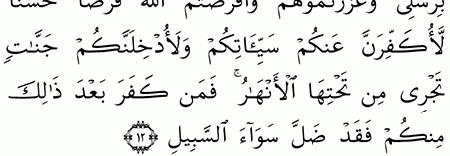 بِرُسُلِي وَعَزَّرْتُمُوهُمْ وَأَقْرَضْتُمُ اللَّهَ قَرْضًا حَسَنًا
لَّأُكَفِّرَنَّ عَنكُمْ سَيِّـَٔاتِكُمْ وَلَأُدْخِلَنَّكُمْ جَنَّـٰتٍ
تَجْرِى مِن تَحْتِهَا ٱلْأَنْهَـٰرُ ۚ فَمَن كَفَرَ بَعْدَ ذَٰلِكَ
مِنكُمْ فَقَدْ ضَلَّ سَوَآءَ ٱلسَّبِيلِ ١٢